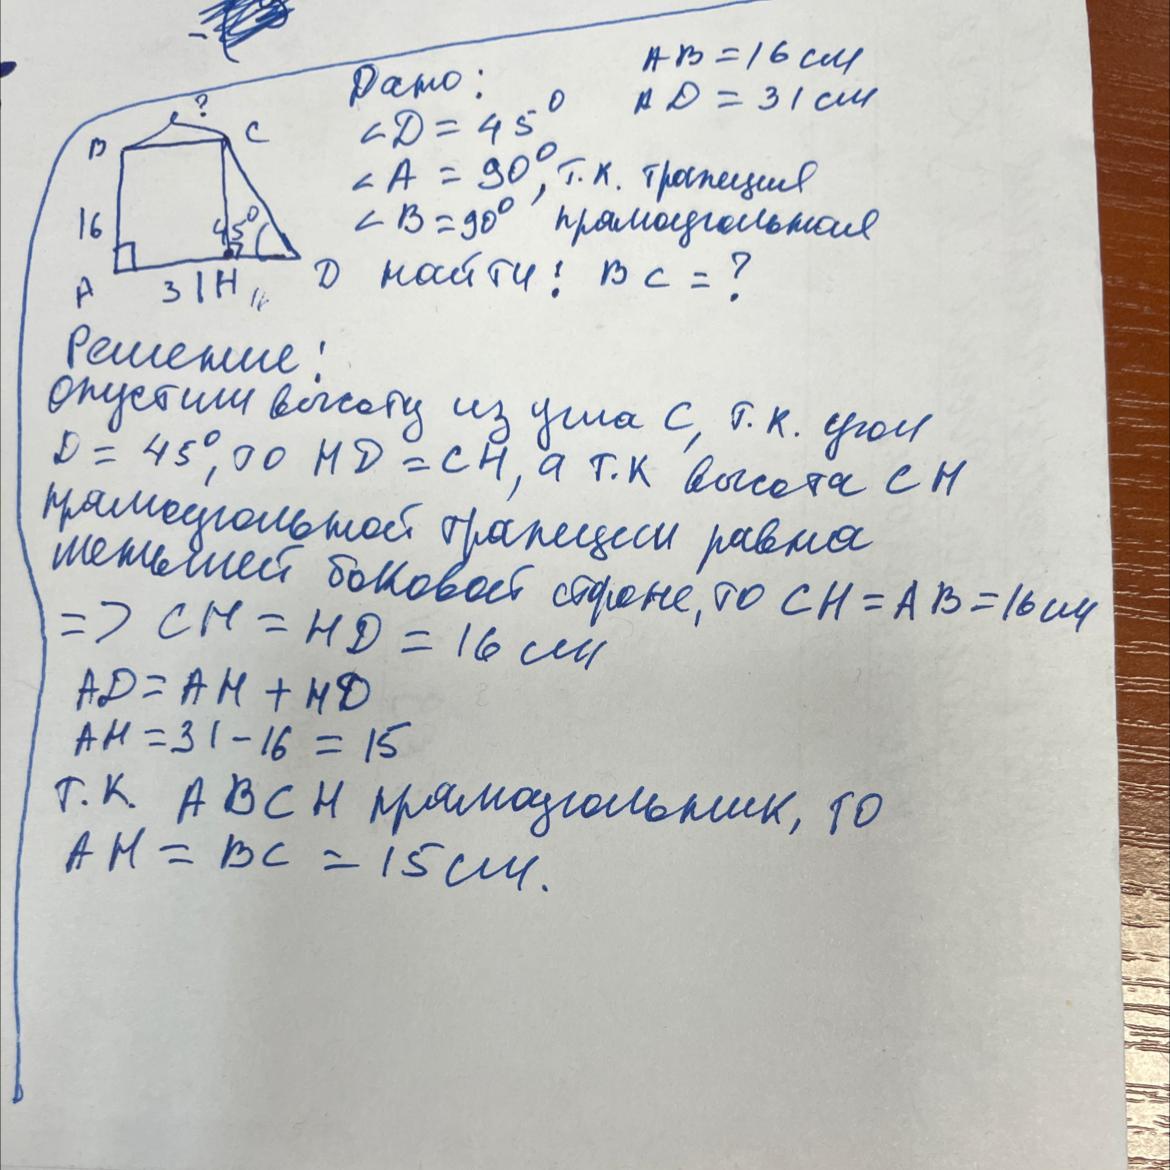 Дано:
AB = 16 см
AD = 31 см
∠D = 45°
∠A = 90°, т.к. трапеция
∠B = 90° прямоугольная
Найти: BC = ?
?
B
C
16
45°
A
31
H
D
Решение:
Опустили высоту из угла C, т.к. угол
D = 45°, то HD = CH, а т.к высота CH
прямоугольной трапеции равна
меньшей боковой стороне, то CH = AB = 16 см
=> CH = HD = 16 см
AD = AH + HD
AH = 31 - 16 = 15
т.к. ABCH прямоугольник, то
AH = BC = 15 см.